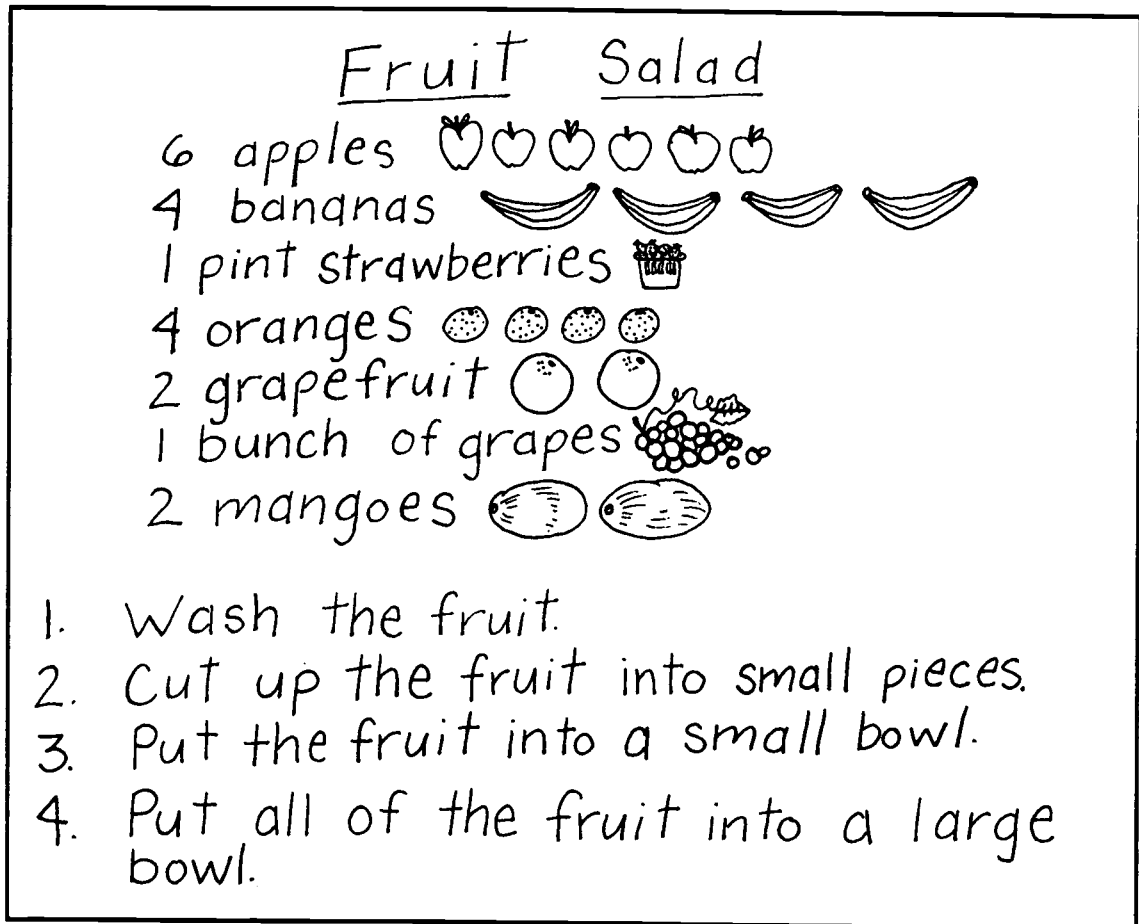 Fruit Salad
6 apples
4 bananas
1 pint strawberries
4 oranges
2 grapefruit
1 bunch of grapes
2 mangoes
1. Wash the fruit.
2. Cut up the fruit into small pieces.
3. Put the fruit into a small bowl.
4. Put all of the fruit into a large
bowl.